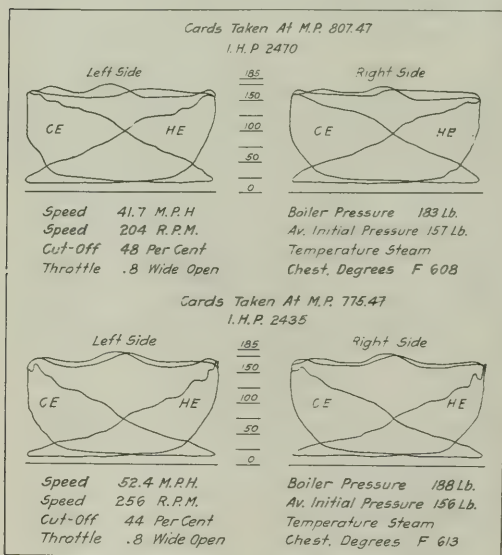 Cards Taken At M.P. 807.47
I.H.P 2470
Left Side
185
Right Side
150
CE
HE
100
CE
HE
50
0
Speed 41.7 M.P.H
Speed 204 R.P.M.
Cut-Off 48 Per Cent
Throttle .8 Wide Open
Boiler Pressure 183 Lb.
Av. Initial Pressure 157 Lb.
Temperature Steam
Chest, Degrees F 608
Cards Taken At M.P. 775.47
I.H.P. 2435
Left Side
185
Right Side
150
CE
HE
100
CE
HE
50
0
Speed 52.4 M.P.H.
Speed 256 R.P.M.
Cut-Off 44 Per Cent
Throttle .8 Wide Open
Boiler Pressure 188 Lb.
Av. Initial Pressure 156 Lb.
Temperature Steam
Chest, Degrees F 613